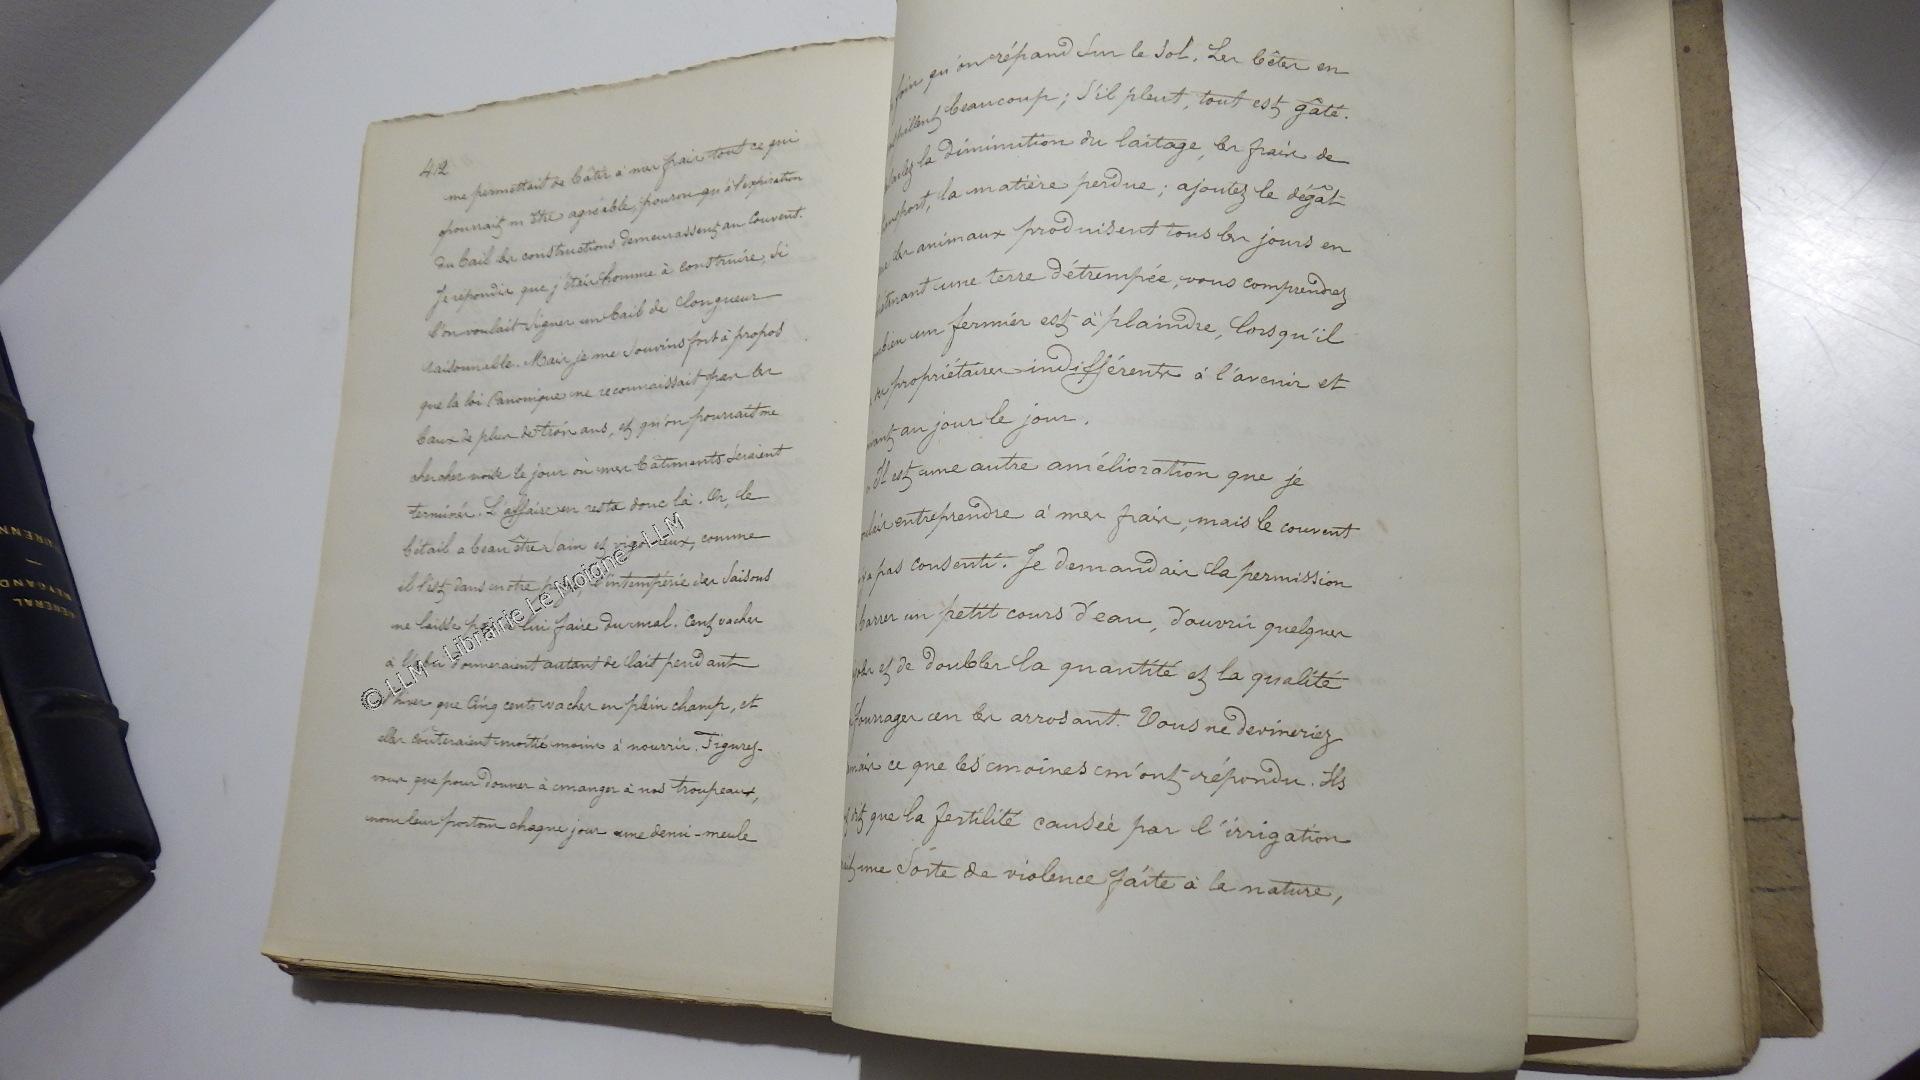 412
me permettait de bâtir à mes frais tout ce qui
pourrait m'être agréable, pourvu qu'à l'expiration
du bail les constructions demeurassent au couvent.
Je répondis que j'étais homme à construire, si
l'on voulait signer un bail de longueur
raisonnable. Mais je me souvins fort à propos
que la loi Canonique ne reconnaissait pas les
baux de plus de trois ans, et qu'on pourrait me
chercher noise le jour où mes bâtiments seraient
terminés. L'affaire en resta donc là. Or, le
bétail a beau être sain et vigoureux, comme
il l'est dans notre l'intempérie des saisons
ne laisse pas lui faire du mal. Cent vaches
à l'abri donneraient autant de lait pendant
l'hiver que cinq cents vaches en plein champ, et
elles coûteraient moitié moins à nourrir. Figurez-
vous que pour donner à manger à nos troupeaux,
nous leur portons chaque jour une demi-meule
foin qu'on répand sur le sol. Les bêtes en
beaucoup ; s'il pleut, tout est gâté.
la diminution du laitage, les frais de
la matière perdue ; ajoutez le dégât
les animaux produisent tous les jours en
une terre détrempée, vous comprendrez
un fermier est à plaindre, lorsqu'il
propriétaires indifférents à l'avenir et
au jour le jour.
" Il est une autre amélioration que je
entreprendre à mes frais, mais le couvent
pas consenti. Je demandais la permission
barrer un petit cours d'eau, d'ouvrir quelques
et de doubler la quantité et la qualité
fourrages en les arrosant. Vous ne devineriez
ce que les moines m'ont répondu. Ils
que la fertilité causée par l'irrigation
une sorte de violence faite à la nature,
© LLM - Librairie Le Moigne - LLM
GENERAL
WEYGAND
—
TURENNE